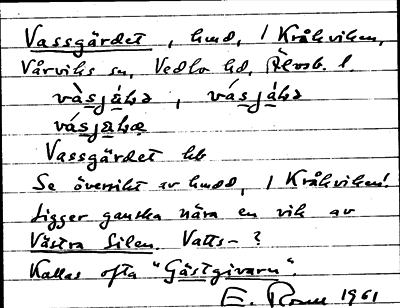 Vassgärdet, hmd, 1 Kråkviken,
Vårviks sn, Vedbo hd, Älvsb. l.
vàsjáḷə, vásjáḷə
Vassgärdet hb
Se översikt av hmdd, 1 Kråkviken!
Ligger ganska nära en vik av
Västra Silen. Vatts- ?
Kallas ofta "Gästgivarn".
E. 1961